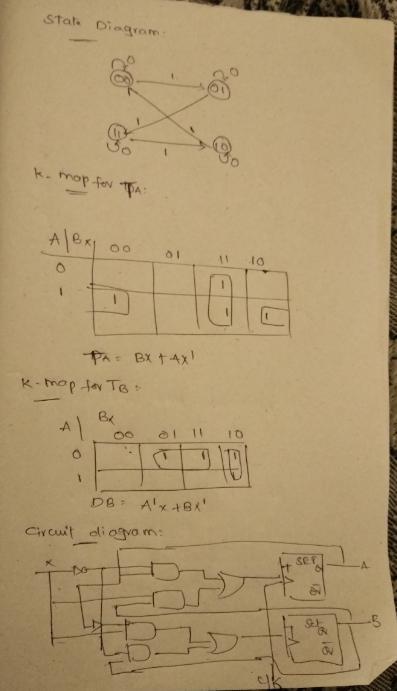 State Diagram:
0 0
00 1 01
1 1
11 1 10
0 0
K-map for TA:
A|Bx 00 01 11 10
0 1
1 1 1 1
TA = Bx + Ax'
K-map for TB:
A| Bx
00 01 11 10
0 1 1 1
1 1
DB = A'x + Bx'
Circuit diagram:
x
SET
Q
A
Q'
SET
Q
B
Q'
C/K